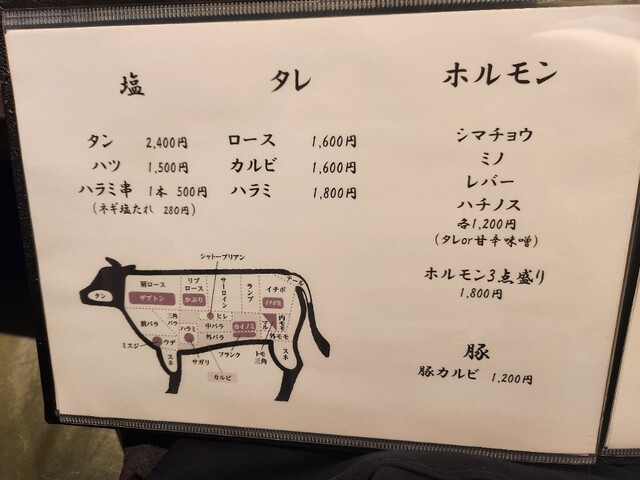 塩
タン 2,400円
ハツ 1,500円
ハラミ串 1本 500円
(ネギ塩たれ 280円)
タレ
ロース 1,600円
カルビ 1,600円
ハラミ 1,800円
ホルモン
シマチョウ
ミノ
レバー
ハチノス
各1,200円
(タレor甘辛味噌)
ホルモン3点盛り
1,800円
豚
豚カルビ 1,200円
シャトーブリアン
タン
肩ロース
ザブトン
リブ
ロース
かぶり
サーロイン
ランプ
イチボ
テール
三角
バラ
ハラミ
ヒレ
中バラ
外バラ
カイノミ
内モモ
外モモ
ミスジ
ウデ
スネ
サガリ
フランク
トモ
三角
スネ
カルビ